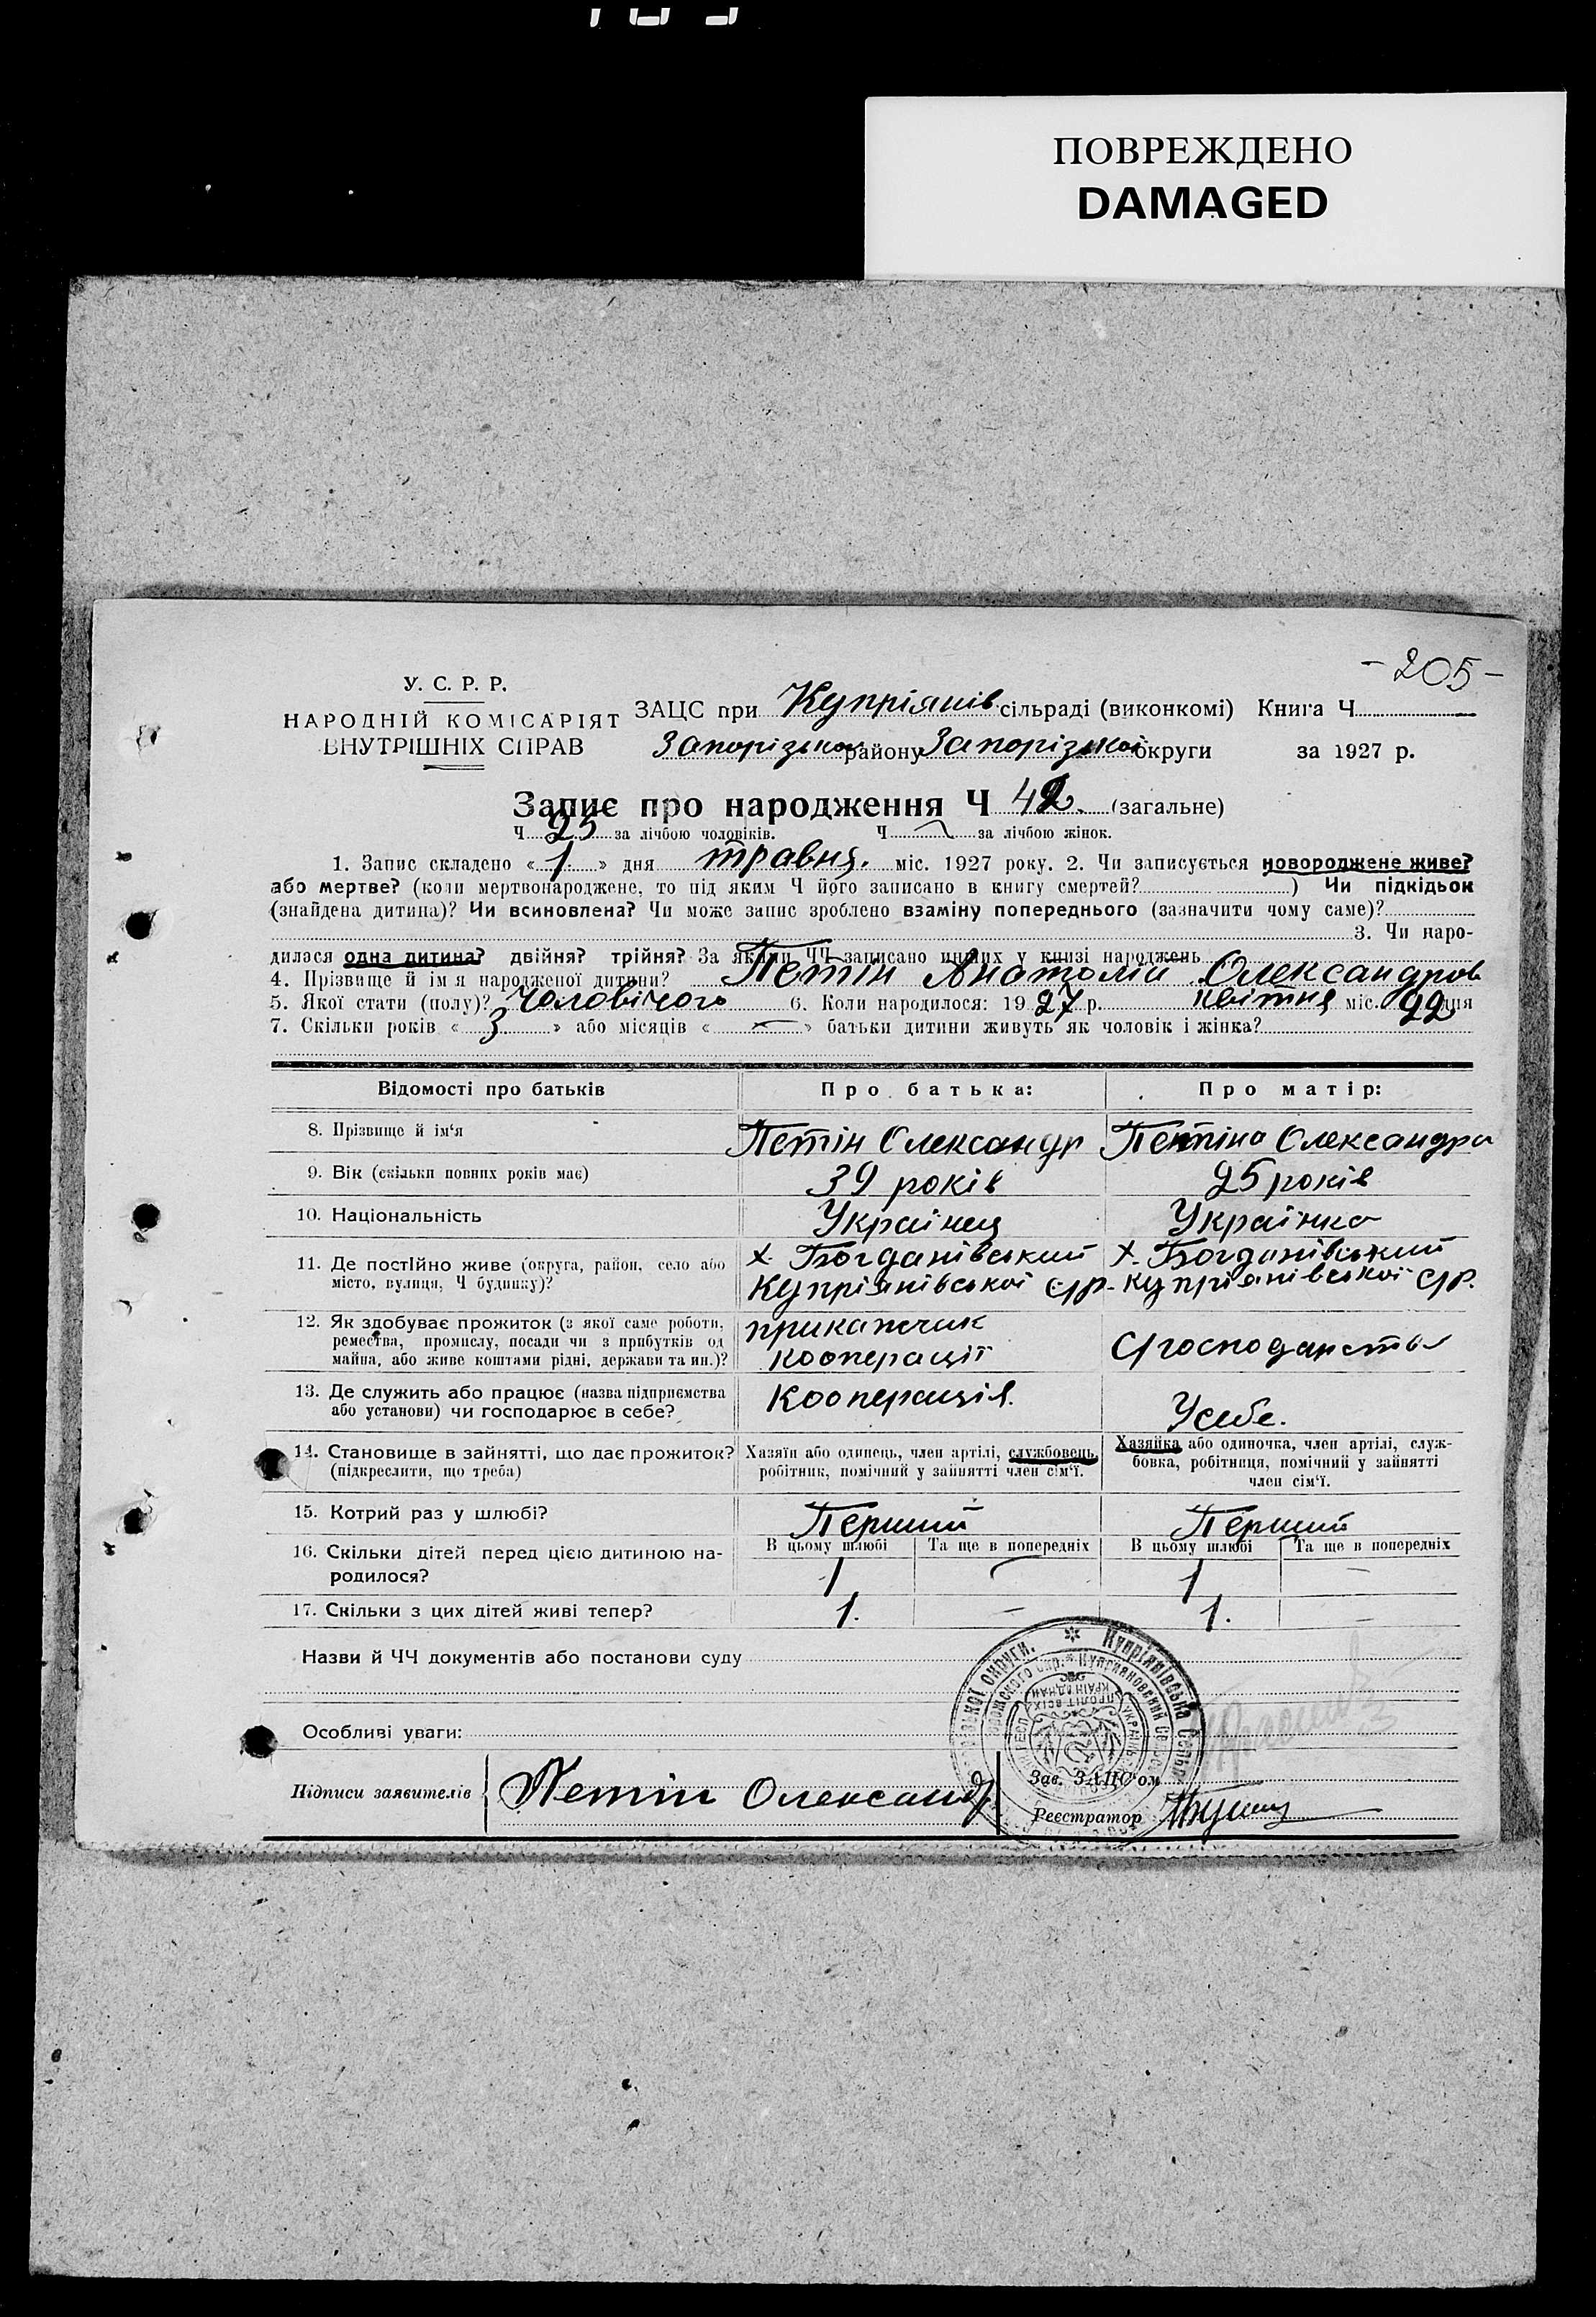 ПОВРЕЖДЕНО
DAMAGED
- 205 -
У. С. Р. Р.
НАРОДНІЙ КОМІСАРІЯТ
ВНУТРІШНІХ СПРАВ
ЗАЦС при Купріянів сільраді (виконкомі) Книга Ч
Запорізько району Запорізької округи за 1927 р.
Запис про народження Ч 42. (загальне)
Ч 25 за лічбою чоловіків. Ч за лічбою жінок.
1. Запис складено « 1 » дня травня. міс. 1927 року. 2. Чи записується новороджене живе?
або мертве? (коли мертвонароджене, то під яким Ч його записано в книгу смертей? ) Чи підкідьок
(знайдена дитина)? Чи всиновлена? Чи може запис зроблено взаміну попереднього (зазначити чому саме)?
3. Чи наро-
дилася одна дитина? двійня? трійня? За якими ЧЧ записано инших у книзі народжень
4. Прізвище й ім'я народженої дитини? Петін Анатолій Олександров
5. Якої стати (полу)? Чоловічого 6. Коли народилося: 1927 р. квітня міс. 22 дня
7. Скільки років « 3 » або місяців « — » батьки дитини живуть як чоловік і жінка?
Відомості про батьків Про батька: Про матір:
8. Прізвище й ім'я Петін Олександр Петіна Олександра
9. Вік (скільки повних років має) 39 років 25 років
10. Національність Українець Українка
11. Де постійно живе (округа, район, село або х. Богданівський х. Богданівський
місто, вулиця, Ч будинку)? Купріянівської с/р. Купріянівської с/р.
12. Як здобуває прожиток (з якої саме роботи, прикажчик
ремества, промислу, посади чи з прибутків од С/господарства
майна, або живе коштами рідні, держави та ин.)? кооперації
13. Де служить або працює (назва підприємства Кооперація.
або установи) чи господарює в себе? У себе.
14. Становище в зайнятті, що дає прожиток? Хазяїн або одинець, член артілі, службовець, Хазяйка або одиночка, член артілі, служ-
(підкреслити, що треба) робітник, помічний у зайнятті член сім'ї. бовка, робітниця, помічний у зайнятті
член сім'ї.
15. Котрий раз у шлюбі? Перший Перший
В цьому шлюбі Та ще в попередніх В цьому шлюбі Та ще в попередніх
16. Скільки дітей перед цією дитиною на- 1 — 1 —
родилося?
17. Скільки з цих дітей живі тепер? 1. — 1. —
Назви й ЧЧ документів або постанови суду
Особливі уваги:
Підписи заявителів Петін Олександр
Зав. ЗАЦС'ом
Реєстратор